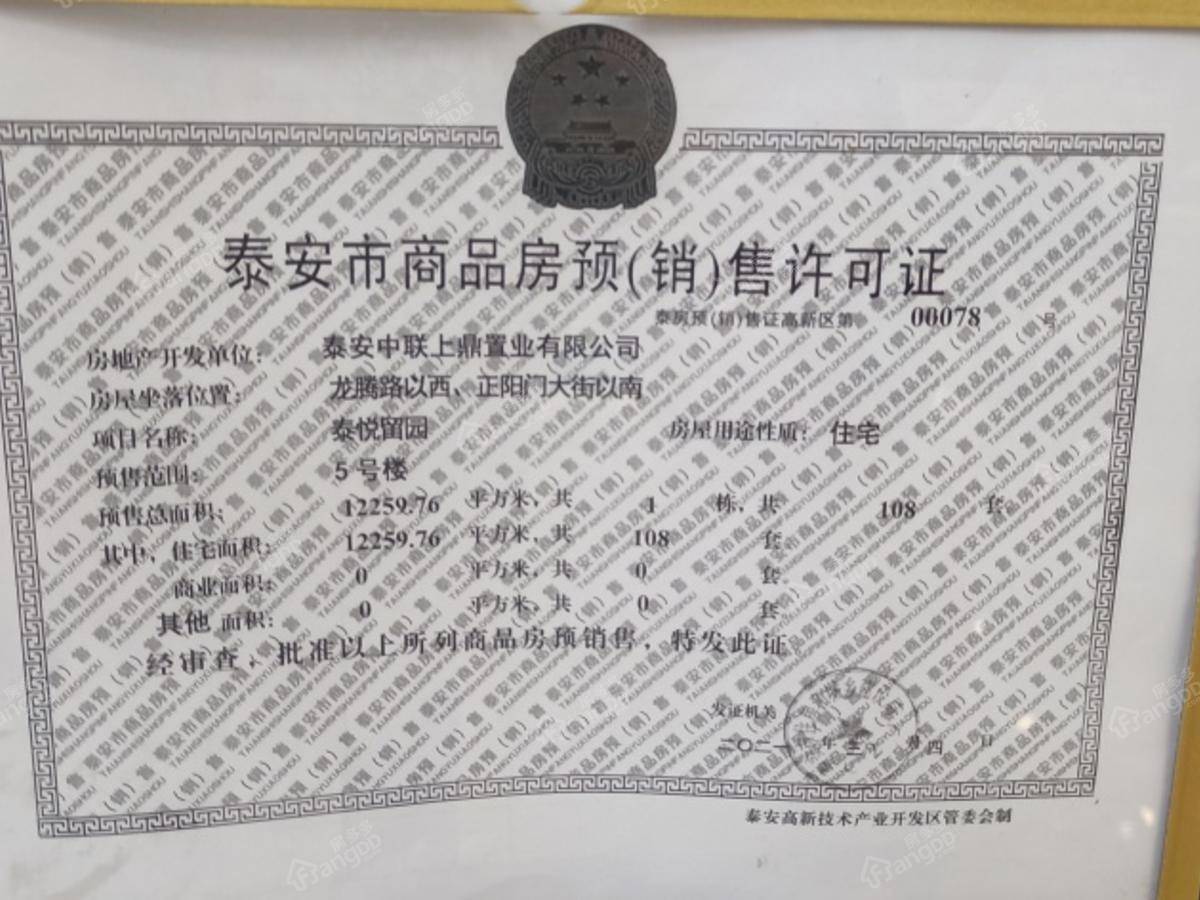 泰安市商品房预(销)售许可证
泰房预(销)售证高新区第 00078 号
房地产开发单位: 泰安中联上鼎置业有限公司
房屋坐落位置: 龙腾路以西、正阳门大街以南
项目名称: 泰悦留园 房屋用途性质: 住宅
预售范围: 5号楼
预售总面积: 12259.76 平方米, 共 1 栋, 共 108 套
其中, 住宅面积: 12259.76 平方米, 共 108 套
商业面积: 0 平方米, 共 0 套
其他 面积: 0 平方米, 共 0 套
经审查, 批准以上所列商品房预销售, 特发此证
发证机关
二〇二一年三月四日
泰安高新技术产业开发区管委会制